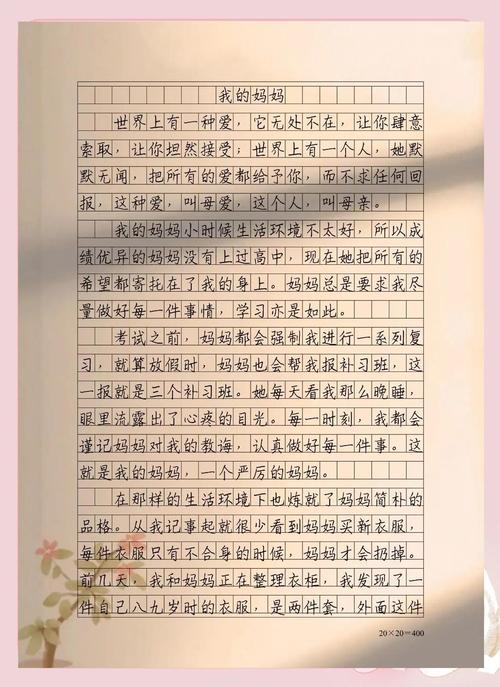 我的妈妈
世界上有一种爱，它无处不在，让你肆意
索取，让你坦然接受；世界上有一个人，她默
默无闻，把所有的爱都给予你，而不求任何回
报，这种爱，叫母爱，这个人，叫母亲。
我的妈妈小时候生活环境不太好，所以成
绩优异的妈妈没有上过高中，现在她把所有的
希望都寄托在了我的身上。妈妈总是要求我尽
量做好每一件事情，学习亦是如此。
考试之前，妈妈都会强制我进行一系列复
习，就算放假时，妈妈也会帮我报补习班，这
一报就是三个补习班。她每天看我那么晚睡，
眼里流露出了心疼的目光。每一时刻，我都会
谨记妈妈对我的教诲，认真做好每一件事。这
就是我的妈妈，一个严厉的妈妈。
在那样的生活环境下也炼就了妈妈简朴的
品格。从我记事起就很少看到妈妈买新衣服，
每件衣服只有不合身的时候，妈妈才会扔掉。
前几天，我和妈妈正在整理衣柜，我发现了一
件自己八九岁时的衣服，是两件套，外面这件
20×20=400